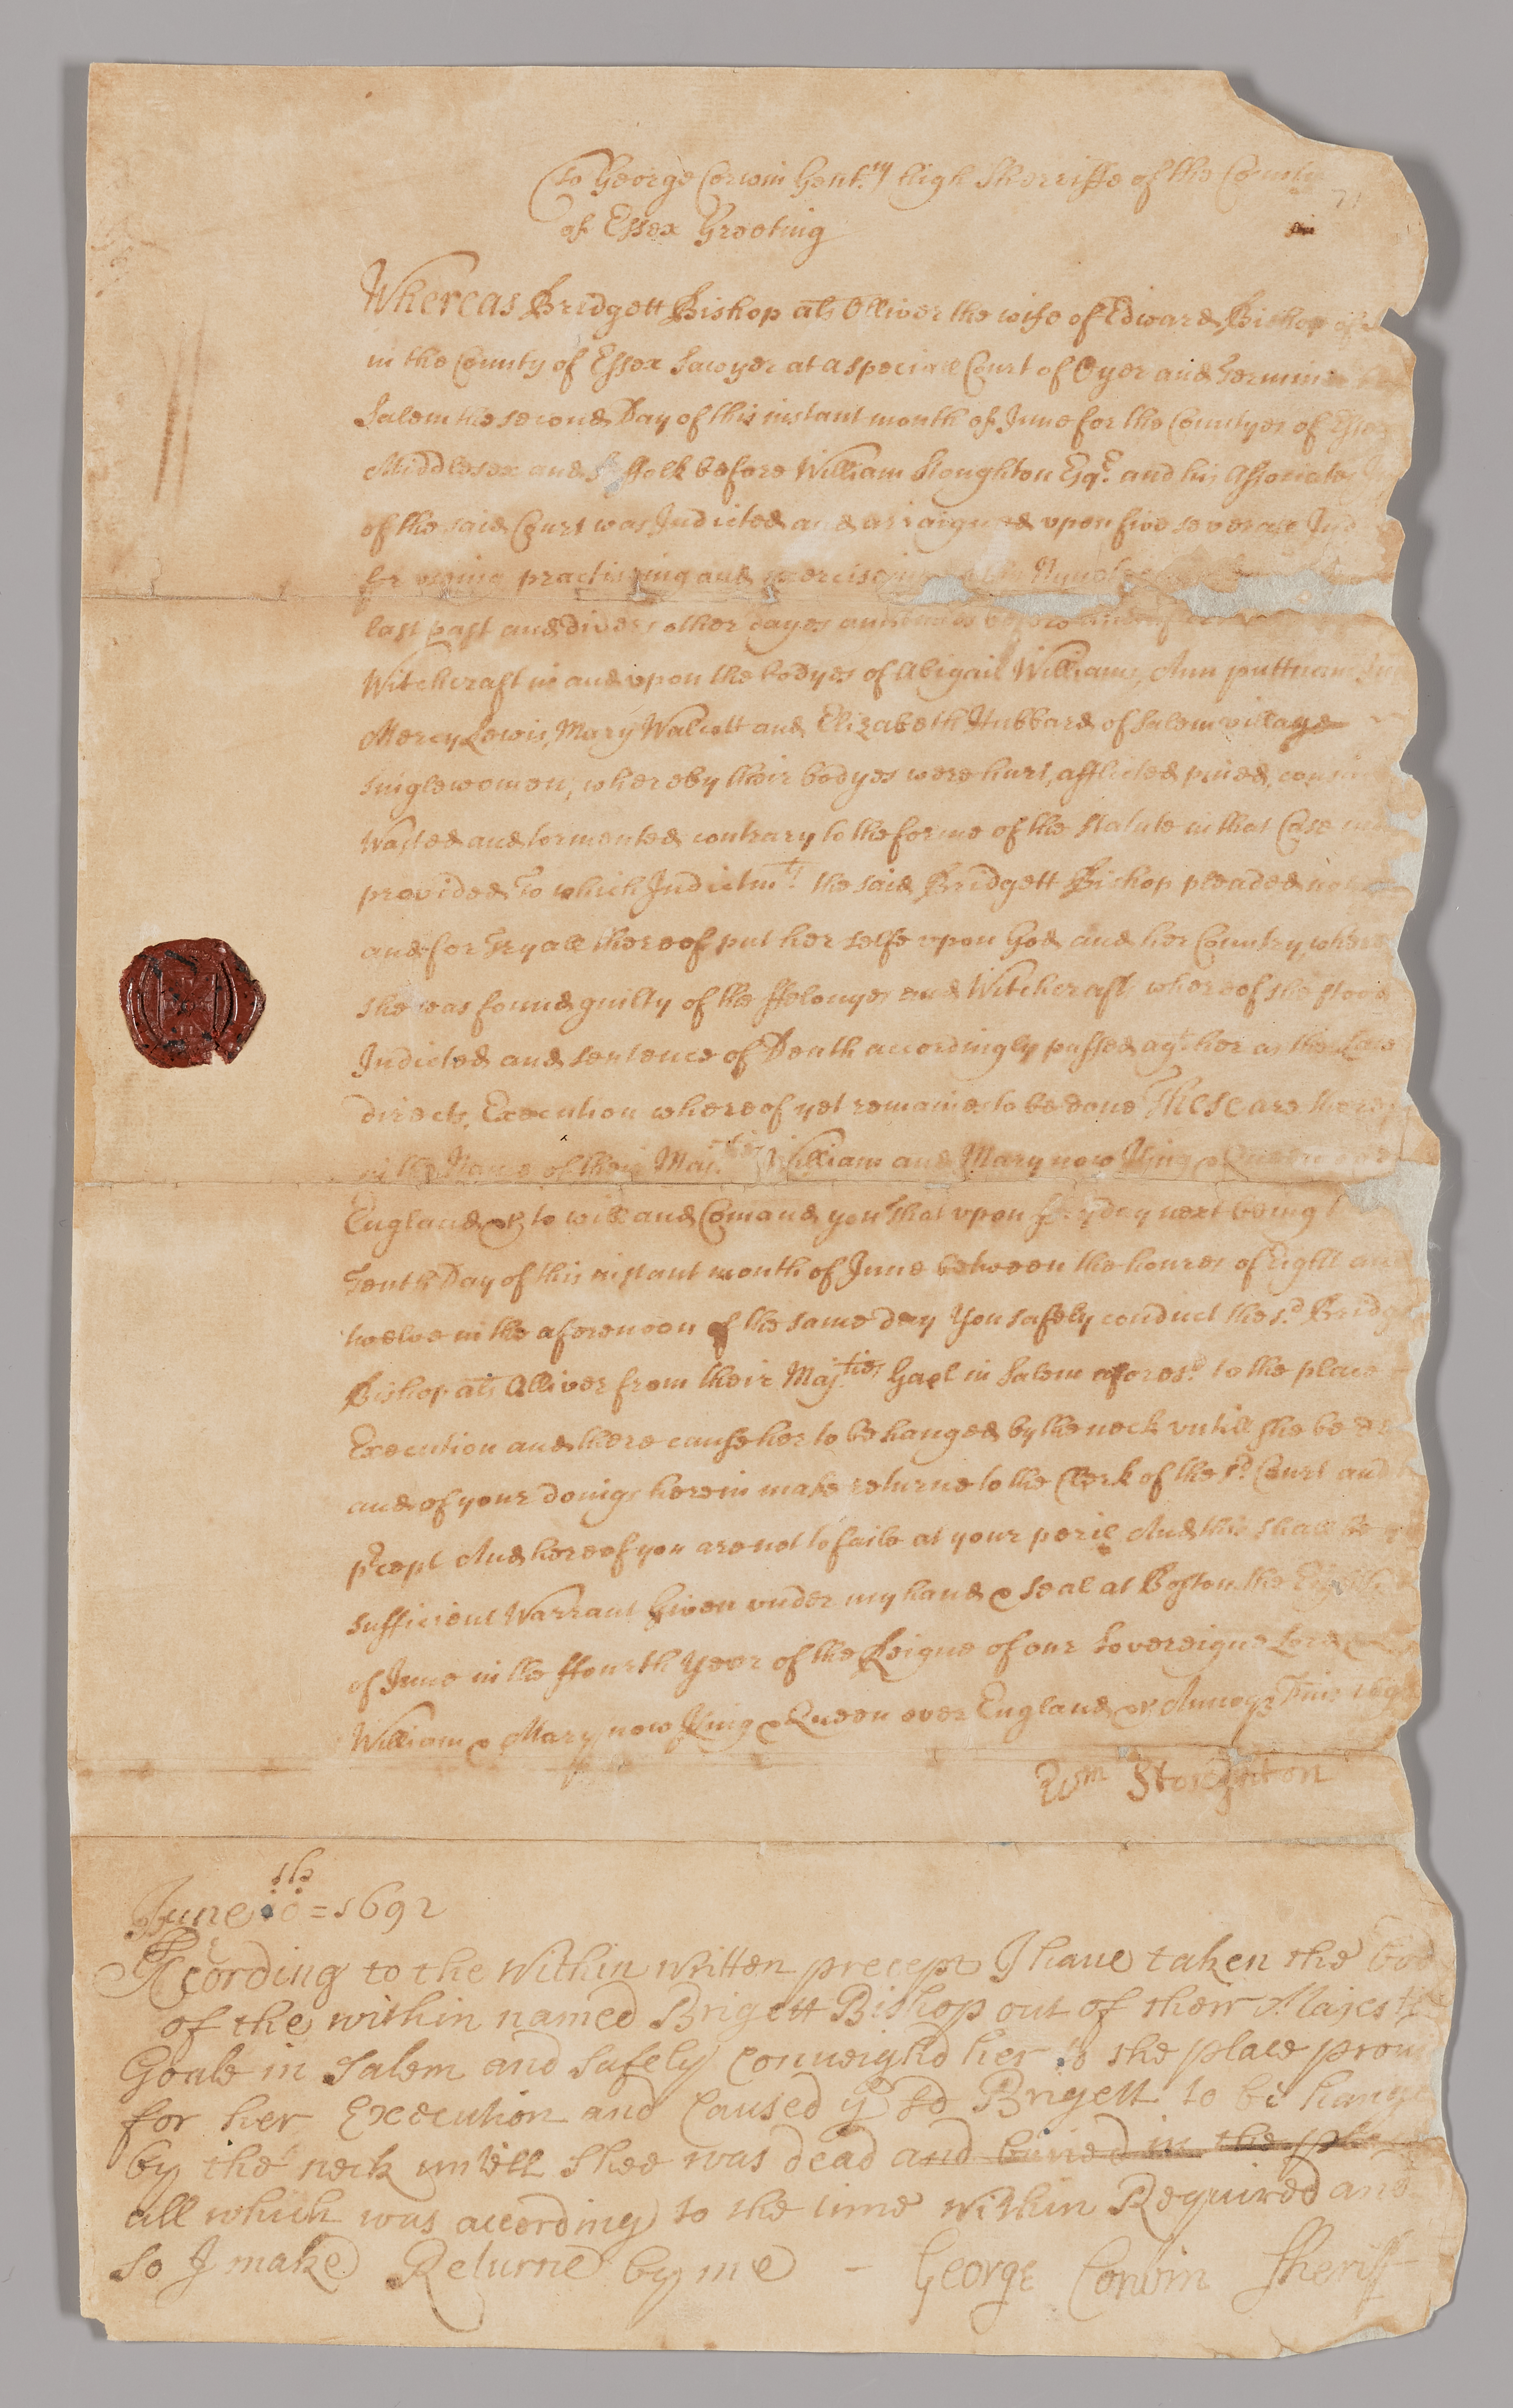 To George Corwin Gent.^m high Sherriffe of the County
of Essex Greeting
Whereas Bridgett Bishop als Olliver the wife of Edward Bishop of
in the County of Essex Sawyer at a speciall Court of Oyer and Termin
Salem the second Day of this instant month of June for the Countyes of Esse
Middlesex and Suffolk before William Stoughton Esq.^e and his Associates
of the said Court was Indicted and arraigned upon five severall Ind
for useing practisseing and exercisein
last past and divers other dayes and times before and after
Witchcraft in and upon the bodyes of Abigail Williams, Ann puttnam
Mercy Lewis, Mary Walcott and Elizabeth Hubbard of Salem village
singlewomen, whereby their bodyes were hurt, afflicted pined, consu
Wasted and tormented contrary to the forme of the Statute in that Case
provided To which Indictm^ts the said Bridgett Bishop pleaded
and for Tryall thereof put her selfe upon God and her Country, where
she was found guilty of the ffelonyes and Witchcrafts whereof she stood
Indicted and sentence of Death accordingly passed ag^t her as the Law
directs, Execution whereof yet remaines to be done These are there
in the Name of their Maj^ties William and Mary now King & Queen over
England &c to will and Comand you That upon fryday next being
Tenth Day of this instant month of June between the houres of Eight and
twelve in the aforenoon of the same day You safely conduct the s^d Bridg
Bishop als Olliver from their Maj^ties Gaol in Salem afores^d to the place
Execution and there cause her to be hanged by the neck untill she be de
and of your doings herein make returne to the Clerk of the s^d Court and
p^rcept And hereof you are not to faile at your peril And this shall be
sufficient Warrant Given under my hand & seal at Boston the Eighth
of June in the ffourth Year of the Reigne of our Sovereigne Lord
William & Mary now King & Queen over England &c Annoq Dm̄ 169
Wm Stoughton
June 10^th = 1692
According to the Within Written precept I have taken the bod
of the within named Brigett Bishop out of their Majesti
Goale in Salem and Safely Conveighd her to the place prov
for her Execution and Caused y^e s^d Brigett to be hange
by the neck untill Shee was dead and buried in the place
all which was according to the time within Required and
So I make Returne by me - George Corwin Sheriff